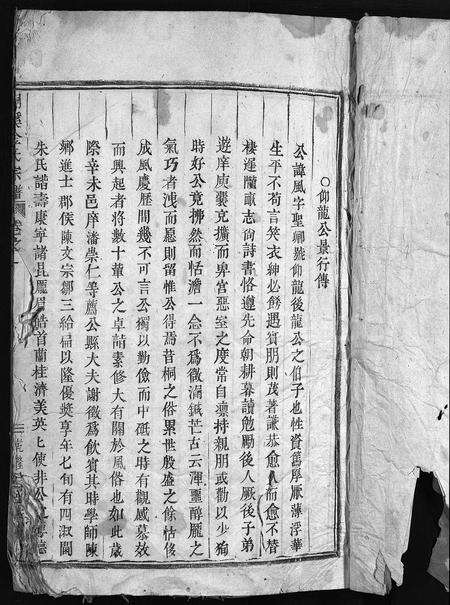 ○仰龍公景行傳
公諱風字聖卿號仰龍後龍公之伯子也性資舊厚厭薄浮華
生平不苟言笑衣紳必飭遇賓朋則茂著謙恭愈久而愈不替
棲遲隴畝志尚詩書恪遵先命朝耕暮讀勉勵後人厥後子弟
遊庠庾襄克擴而卑宮惡室之度常自凛持親朋或勸以少狥
時好公竟拂然而恬澹一念不爲微滿鍼芒古云渾噩醇龎之
氣巧者淺而愿則留惟公得焉昔桐之俗累世殷盛之餘恬侈
成風慶歷間幾不可言公獨以勤儉而中砥之時有觀感慕效
而興起者將數十輩公之卓荷素修大有關於風俗也如此歲
際辛未邑庠潘崇仁等薦公縣大夫謝徵爲飲賓其時學師陳
鄉進士郡侯陳文宗鄒三給扁以隆優奬享年七旬有四淑閫
朱氏諧壽康寧諸昆龎眉皓首蘭桂濟美英七使非公
氏宗譜 卷之